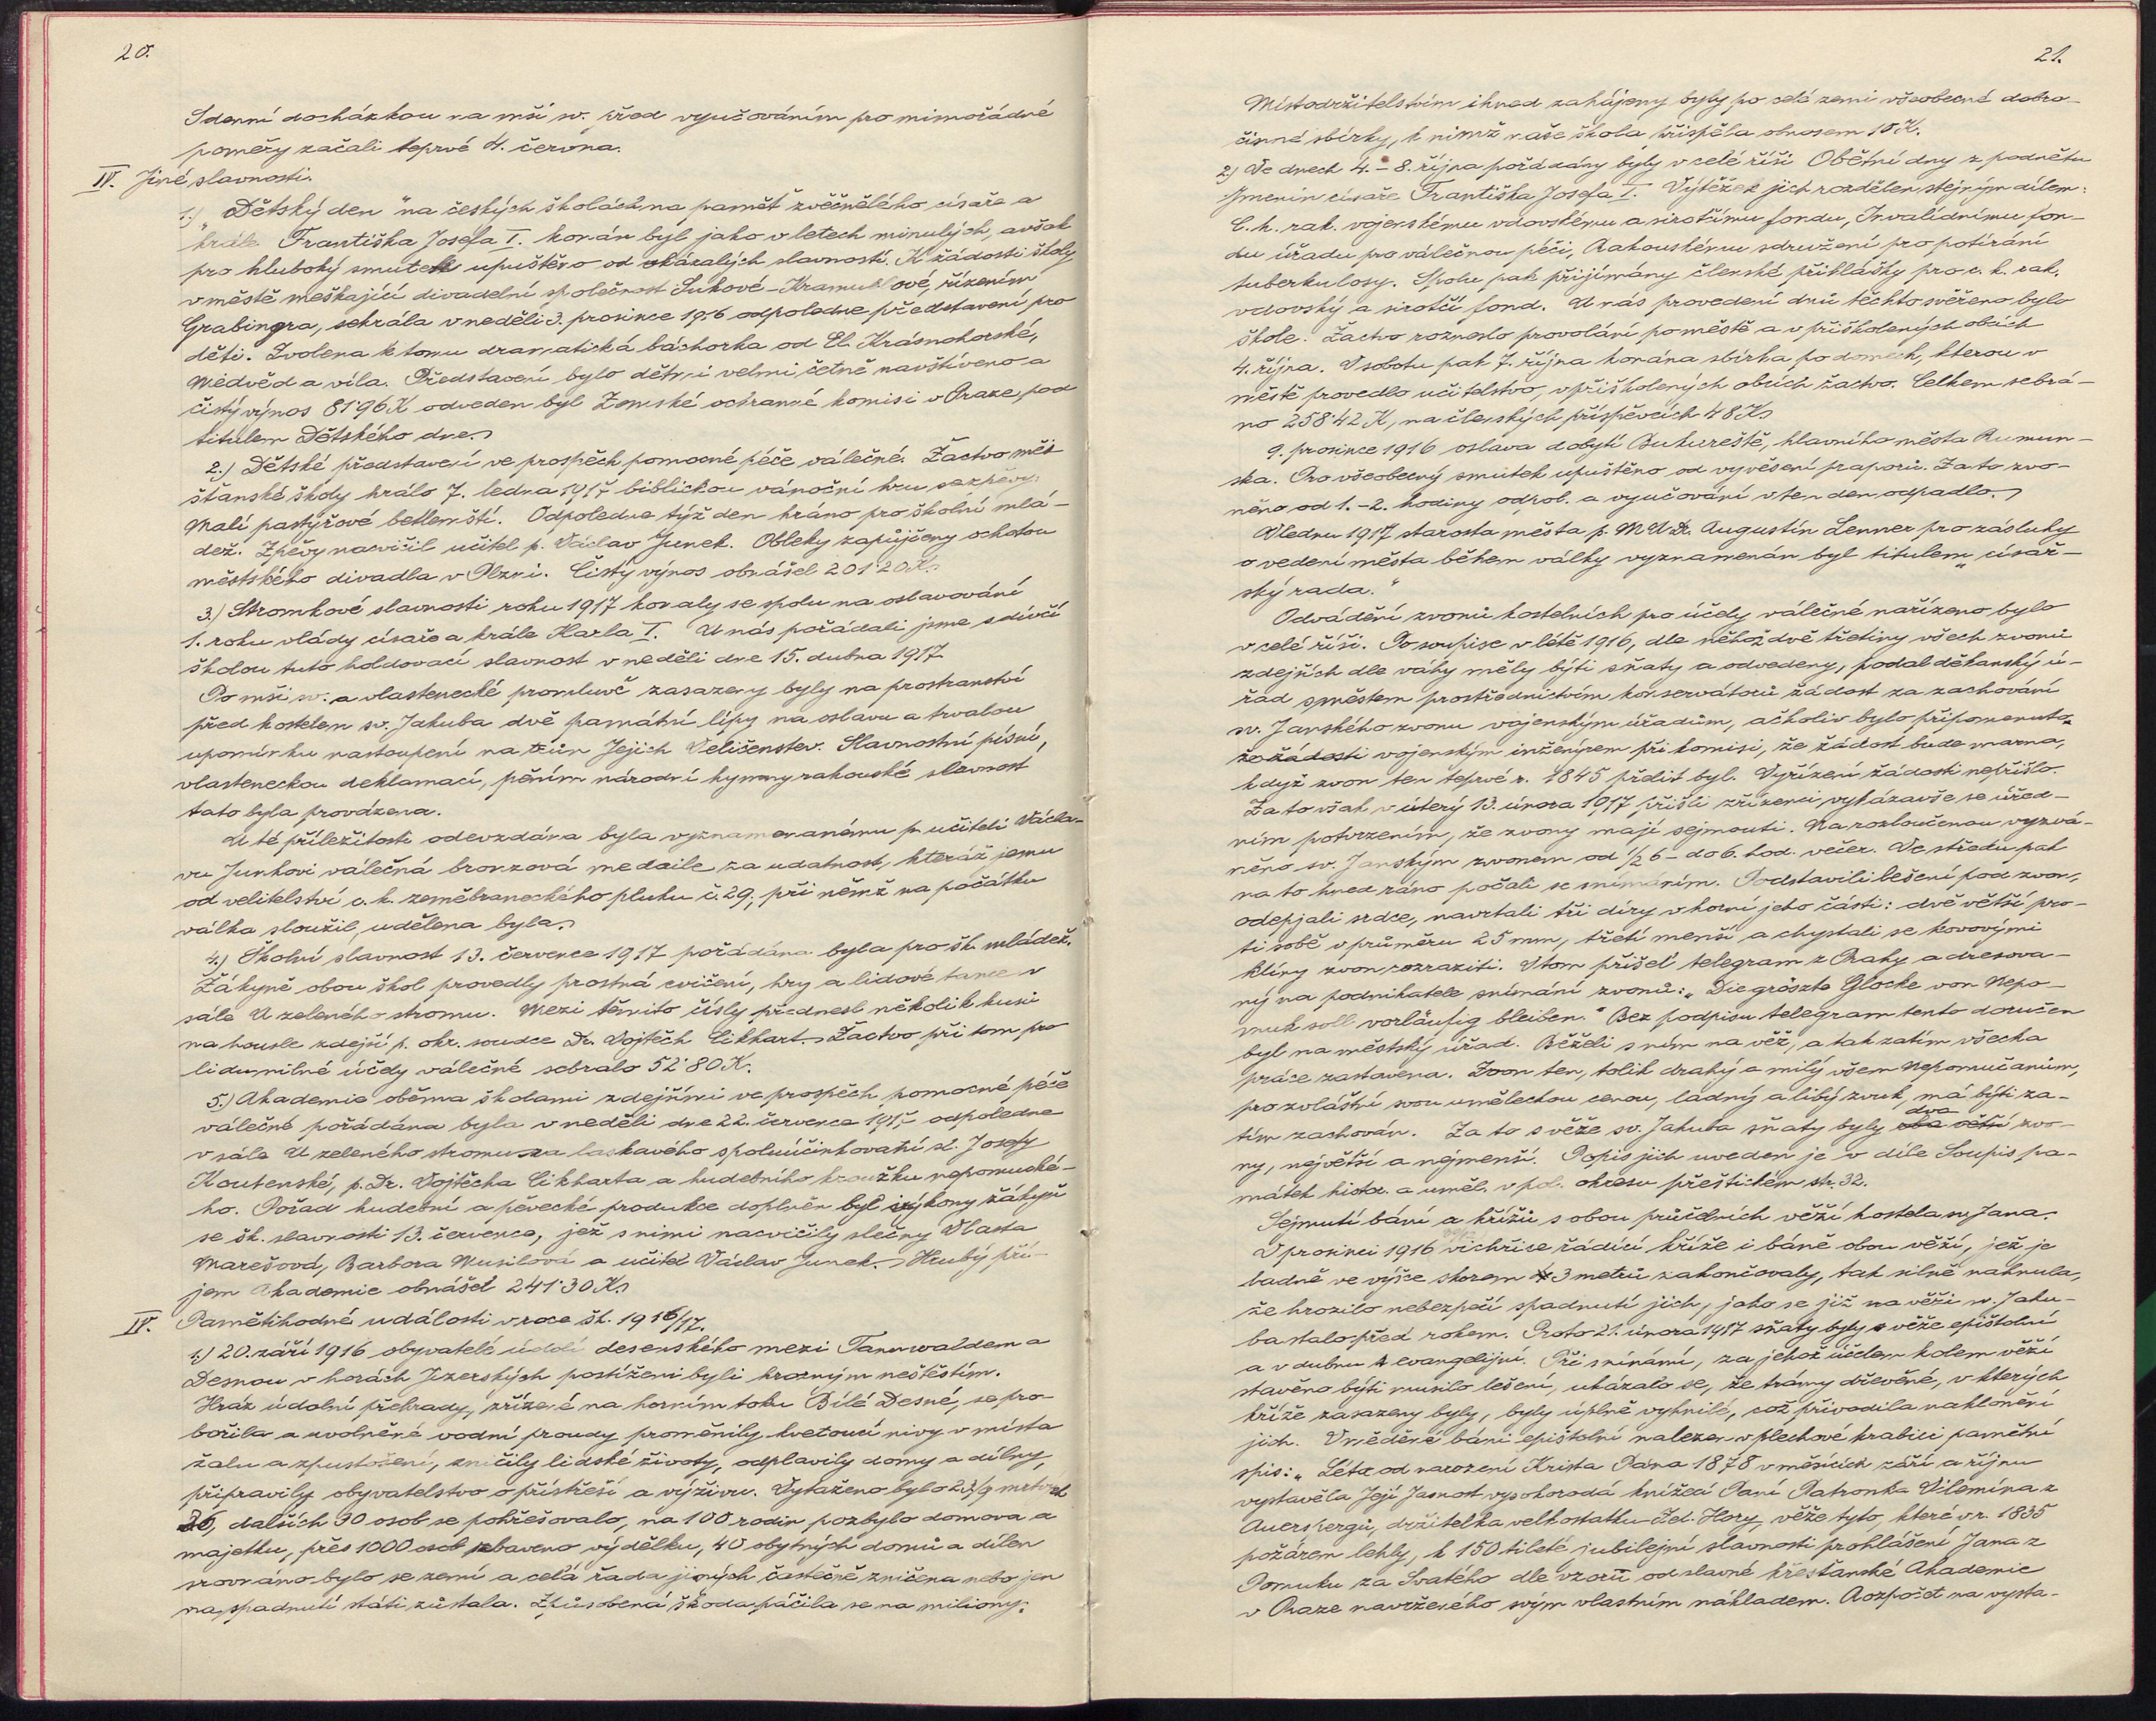 20.
S denní docházkou na mši sv. před vyučováním pro mimořádné
poměry začali teprvé 4. června.
IV. Jiné slavnosti.
1.) „Dětský den" na českých školách na paměť zvěčnělého císaře a
krále Františka Josefa I. konán byl jako v letech minulých, avšak
pro hluboký smutek upuštěno od okázalých slavností. K žádosti školy
v městě meškající divadelní společnost Sukové-Kramulové, řízením
Grabingra, sehrála v neděli 3. prosince 1916 odpoledne představení pro
děti. Zvolena k tomu dramatická báchorka od El. Krásnohorské,
Medvěd a víla. Představení bylo dětmi velmi četně navštíveno a
čistý výnos 81·96 K odveden byl Zemské ochranné komisi v Praze pod
titulem Dětského dne.
2.) Dětské představení ve prospěch pomocné péče válečné. Žactvo měš-
šťanské školy hrálo 7. ledna 1917 biblickou vánoční hru se zpěvy:
Malí pastýřové betlemští. Odpoledne týž den hráno pro školní mlá-
dež. Zpěvy nacvičil učitel p. Václav Junek. Obleky zapůjčeny ochotou
městského divadla v Plzni. Čistý výnos obnášel 201·20 K.
3.) Stromkové slavnosti roku 1917 konaly se spolu na oslavování
1. roku vlády císaře a krále Karla I. U nás pořádali jsme s dívčí
školou tuto holdovací slavnost v neděli dne 15. dubna 1917.
Po mši sv. a vlastenecké promluvě zasazeny byly na prostranství
před kostelem sv. Jakuba dvě památní lípy na oslavu a trvalou
upomínku nastoupení na trůn Jejich Veličenstev. Slavnostní písní,
vlasteneckou deklamací, pěním národní hymny rakouské slavnost
tato byla provázena.
U té příležitosti odevzdána byla vyznamenanému p. učiteli Václa-
vu Junkovi válečná bronzová medaile za udatnost, kteráž jemu
od velitelství c. k. zeměbraneckého pluku č. 29., při němž na počátku
válka sloužil, udělena byla.
4.) Školní slavnost 13. července 1917 pořádána byla pro šk. mládež.
Žákyně obou škol provedly prostná cvičení, hry a lidové tance v
sále U zeleného stromu. Mezi těmito čísly přednesl několik kusů
na housle zdejší p. okr. soudce Dr. Vojtěch Cikhart. Žactvo při tom pro
lidumilné účely válečné sebralo 52·80 K.
5.) Akademie oběma školami zdejšími ve prospěch pomocné péče
válečné pořádána byla v neděli dne 22. července 1917 odpoledne
v sále U zeleného stromu za laskavého spoluúčinkování sl. Josefy
Koutenské, p. Dr. Vojtěcha Cikharta a hudebního kroužku nepomucké-
ho. Pořad hudební a pěvecké produkce doplněn byl výkony žákyň
se šk. slavnosti 13. července, jež s nimi nacvičily slečny Vlasta
Marešová, Barbora Musilová a učitel Václav Junek. Hrubý pří-
jem Akademie obnášel 241·30 K.
IV. Pamětihodné události v roce šk. 1916/17.
1.) 20. září 1916 obyvatelé údolí desenského mezi Tannwaldem a
Desnou v horách Jizerských postiženi byli hrozným neštěstím.
Hráz údolní přehrady, zřízené na horním toku Bílé Desné, se pro-
bořila a uvolněné vodní proudy proměnily kvetoucí nivy v místa
žalu a zpustošení, zničily lidské životy, odplavily domy a dílny,
připravily obyvatelstvo o přístřeší a výživu. Vytaženo bylo mrtvol
dalších 30 osob se pohřešovalo, na 100 rodin pozbylo domova a
majetku, přes 1000 osob zbaveno výdělku, 40 obytných domů a dílen
srovnáno bylo se zemí a celá řada jiných častečně zničena nebo jen
na spadnutí státi zůstala. Způsobená škoda páčila se na miliony.
21.
Místodržitelstvím ihned zahájeny byly po celé zemi všeobecné dobro-
činné sbírky, k nimž naše škola přispěla obnosem 18 K.
2.) Ve dnech 4.-8. října pořádány byly v celé říši Obětní dny z podnětu
Jmenin císaře Františka Josefa I. Výtěžek jich rozdělen stejným dílem:
C. k. rak. vojenskému vdovskému a sirotčímu fondu, Invalidnímu fon-
du úřadu pro válečnou péči, Rakouskému sdružení pro potírání
tuberkulosy. Spolu pak přijímány členské přihlášky pro c. k. rak.
vdovský a sirotčí fond. U nás provedení dnů těchto svěřeno bylo
škole. Žactvo rozneslo provolání po městě a v přiškolených obcích
4. října. V sobotu pak 7. října konána sbírka po domech, kterou v
městě provedlo učitelstvo, v přiškolených obcích žactvo. Celkem sebrá-
no 258·42 K, na členských příspěvcích 48 K.
9. prosince 1916 oslava dobytí Bukureště, hlavního města Rumun-
ska. Pro všeobecný smutek upuštěno od vyvěšení praporů. Za to zvo-
něno od 1.-2. hodiny odpol. a vyučování v ten den odpadlo.
V lednu 1917 starosta města p. MUDr. Augustin Lenner pro zásluhy
o vedení města během války vyznamenán byl titulem „císař-
ský rada."
Odvádění zvonů kostelních pro účely válečné nařízeno bylo
v celé říši. Po soupise v létě 1916, dle něhož dvě třetiny všech zvonů
zdejších dle váhy měly býti sňaty a odvedeny, podal děkanský ú-
řad s městem prostřednictvím konservátorů žádost za zachování
sv. Janského zvonu vojenským úřadům, ačkoliv bylo připomenuto
že žádosti vojenským inženýrem při komisi, že žádost bude marna,
když zvon ten teprvé r. 1845 přelit byl. Vyřízení žádosti nepřišlo.
Za to však v úterý 13. února 1917 přišli zřízenci, vykázavše se úřed-
ním potvrzením, že zvony mají sejmouti. Na rozloučenou vyzvá-
něno sv. Janským zvonem od ½ 6 - do 6. hod. večer. Ve středu pak
na to hned ráno počali se snímáním. Podstavili lešení pod zvon,
odepjali srdce, navrtali tři díry v horní jeho části: dvě větší pro-
ti sobě v průměru 25 mm, třetí menší a chystali se kovovými
klíny zvon rozraziti. V tom přišel telegram z Prahy adresova-
ný na podnikatele snímání zvonů: „Die gröszte Glocke von Nepo-
muk soll vorläufig bleiben." Bez podpisu telegram tento doručen
byl na městský úřad. Běželi s ním na věž, a tak zatím všecka
práce zastavena. Zvon ten, tolik drahý a milý všem Nepomučanům,
pro zvláštní svou uměleckou cenou, ladný a libý zvuk, má býti za-
tím zachován. Za to s věže sv. Jakuba sňaty byly dva oba větší zvo-
ny, největší a nejmenší. Popis jich uveden je v díle Soupis pa-
mátek histor. a uměl. v pol. okresu přeštickém str. 32.
Sejmutí bání a křížů s obou průčelních věží kostela sv. Jana.
V prosinci 1916 vichřice řádící kříže i báně obou věží, jež je
ladně ve výšce skorem 3 metrů zakončovaly, tak silně nahnula,
že hrozilo nebezpečí spadnutí jich, jako se již na věži sv. Jaku-
ba stalo před rokem. Proto 21. února 1917 sňaty byly s věže epištolní
a v dubnu s evangelijní. Při snímání, za jehož účelem kolem věží
stavěno býti musilo lešení, ukázalo se, že trámy dřevěné, v kterých
kříže zasazeny byly, byly úplně vyhnilé, což přivodilo naklonění
jich. V měděné báni epištolní nalezen v plechové krabici pamětní
spis: „Léta od narození Krista Pána 1878 v měsících září a říjnu
vystavěla Její Jasnost vysokorodá knížecí Paní Patronka Vilemína z
Auerspergů, držitelka velkostatku Zel. Hory, věže tyto, které v r. 1835
požárem lehly, k 150tileté jubilejní slavnosti prohlášení Jana z
Pomuku za Svatého dle vzorů od slavné křesťanské Akademie
v Praze navrženého svým vlastním nákladem. Rozpočet na vysta-